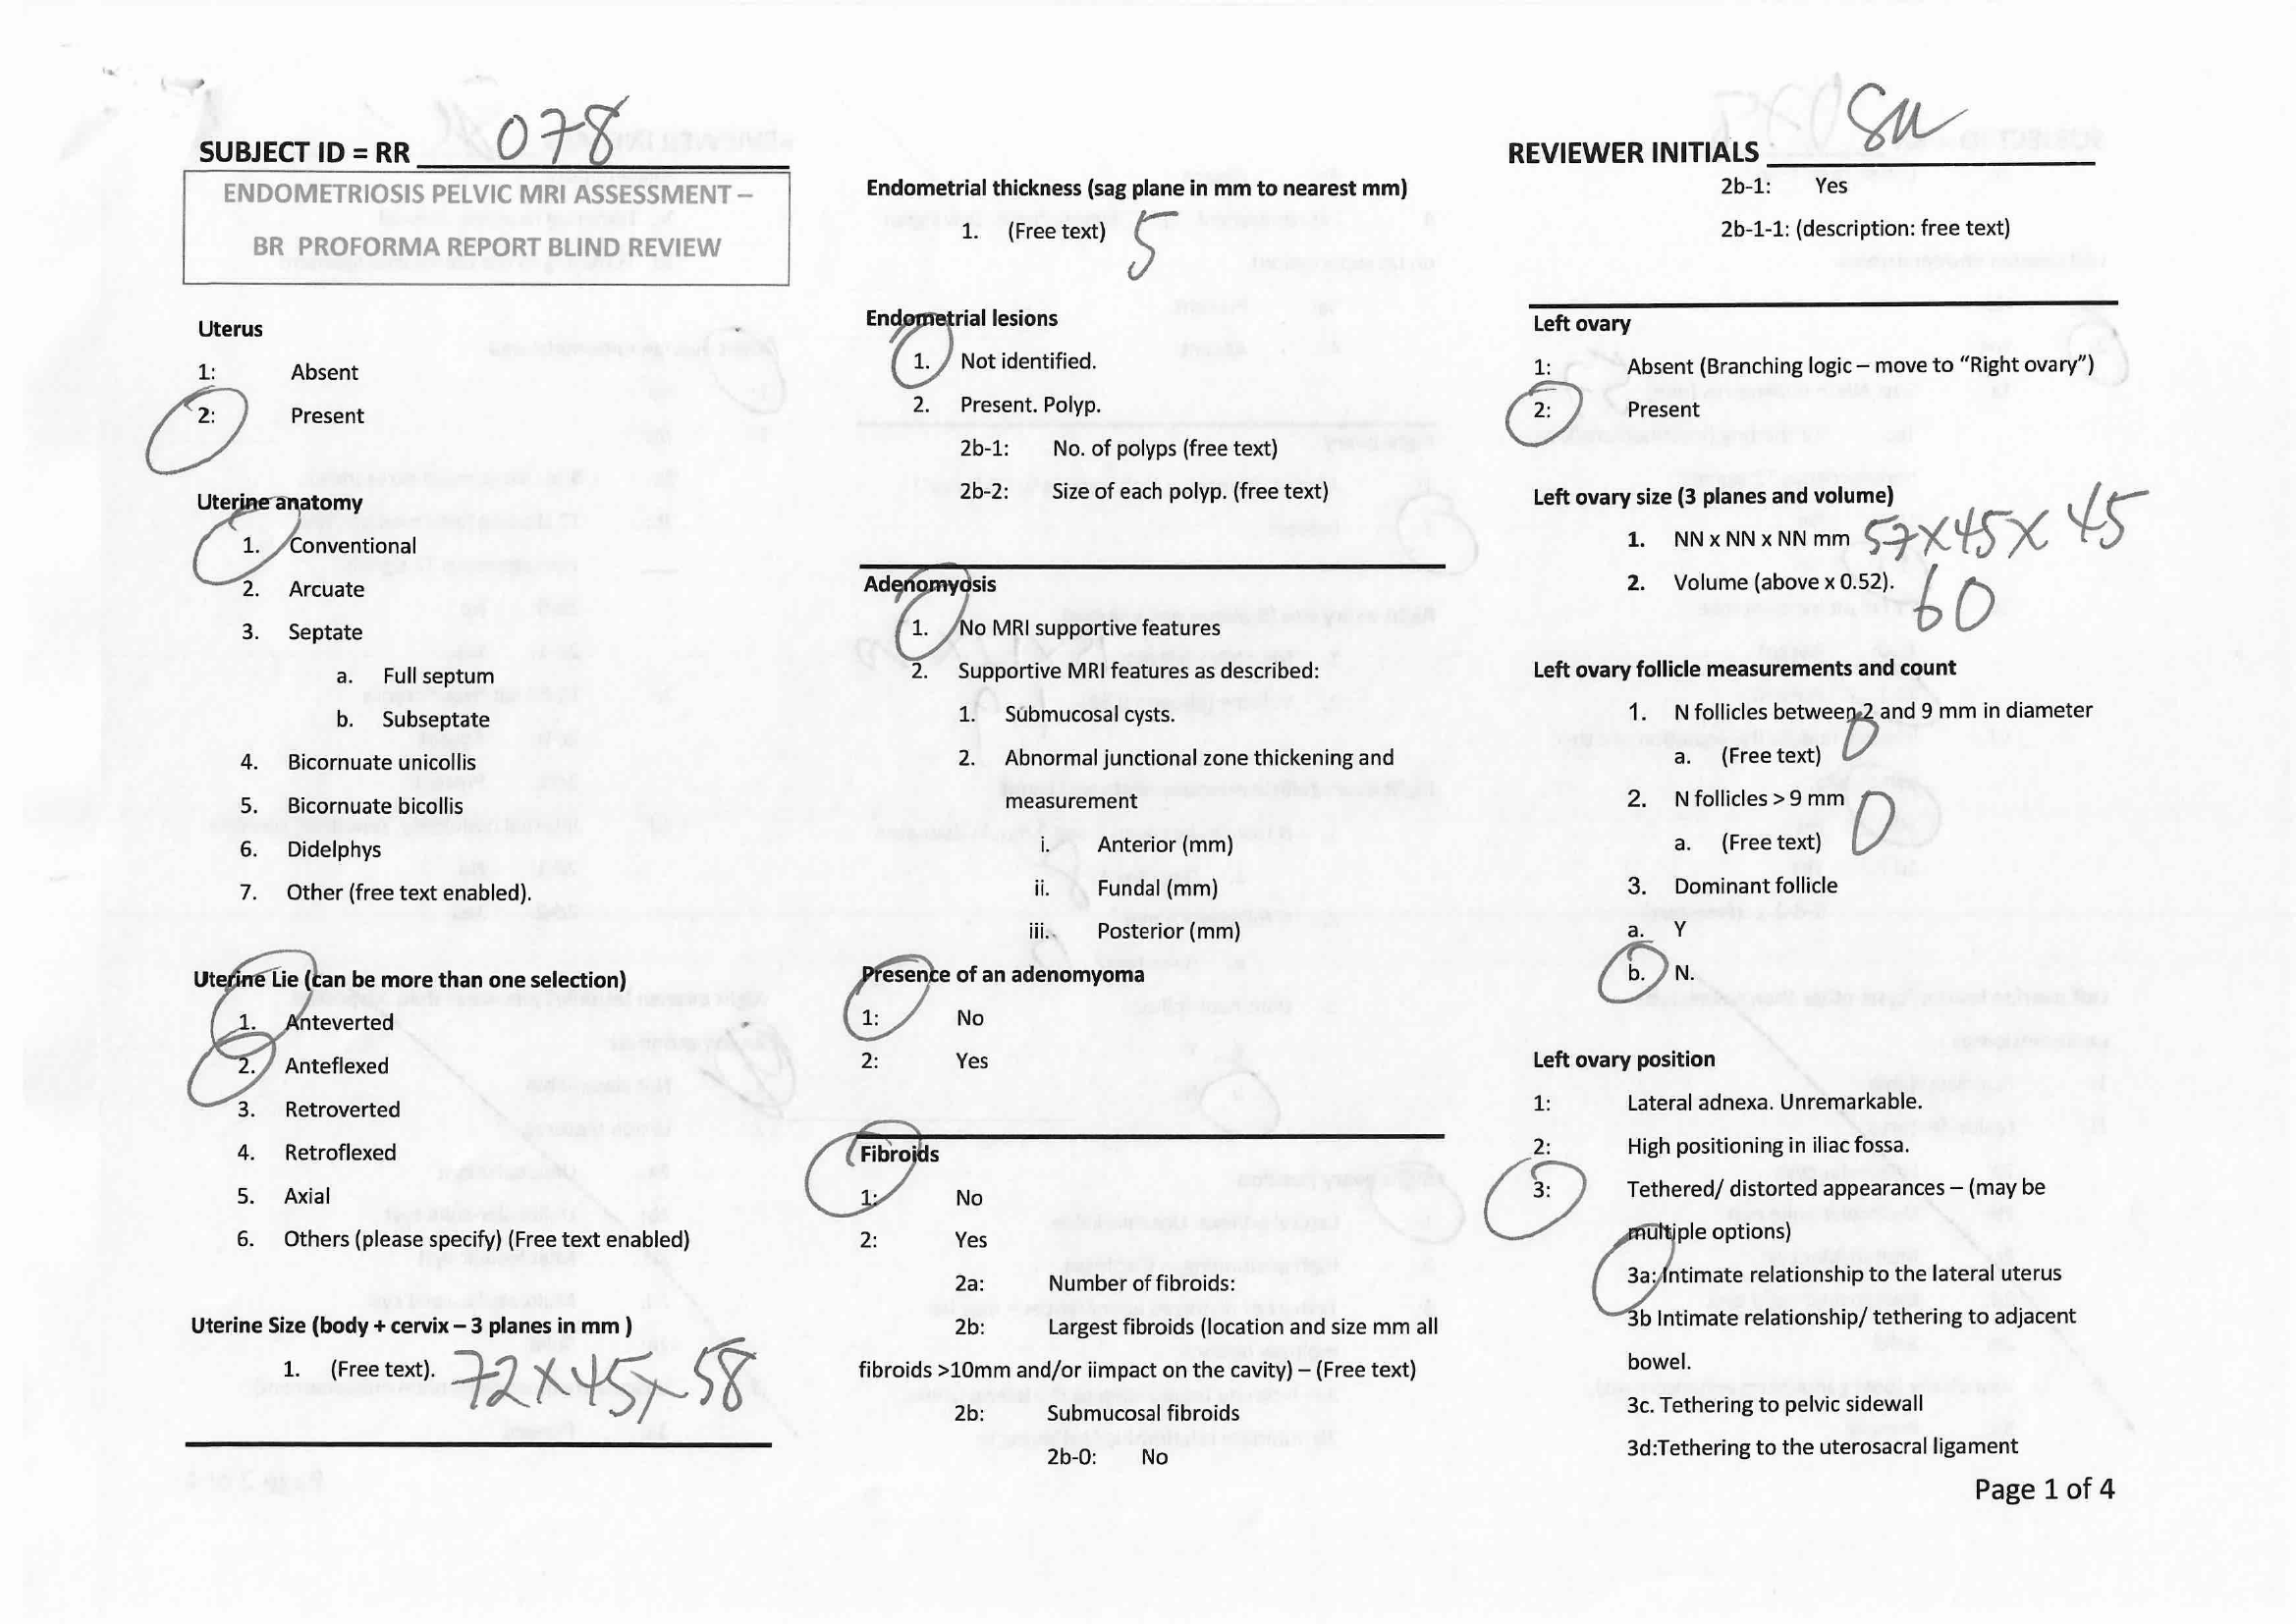 SUBJECT ID = RR 078
ENDOMETRIOSIS PELVIC MRI ASSESSMENT –
BR PROFORMA REPORT BLIND REVIEW
Uterus
1: Absent
2: Present
Uterine anatomy
1. Conventional
2. Arcuate
3. Septate
a. Full septum
b. Subseptate
4. Bicornuate unicollis
5. Bicornuate bicollis
6. Didelphys
7. Other (free text enabled).
Uterine Lie (can be more than one selection)
1. Anteverted
2. Anteflexed
3. Retroverted
4. Retroflexed
5. Axial
6. Others (please specify) (Free text enabled)
Uterine Size (body + cervix – 3 planes in mm )
1. (Free text). 72x45x58
Endometrial thickness (sag plane in mm to nearest mm)
1. (Free text) 5
Endometrial lesions
1. Not identified.
2. Present. Polyp.
2b-1: No. of polyps (free text)
2b-2: Size of each polyp. (free text)
Adenomyosis
1. No MRI supportive features
2. Supportive MRI features as described:
1. Submucosal cysts.
2. Abnormal junctional zone thickening and
measurement
i. Anterior (mm)
ii. Fundal (mm)
iii. Posterior (mm)
Presence of an adenomyoma
1: No
2: Yes
Fibroids
1: No
2: Yes
2a: Number of fibroids:
2b: Largest fibroids (location and size mm all
fibroids >10mm and/or iimpact on the cavity) – (Free text)
2b: Submucosal fibroids
2b-0: No
REVIEWER INITIALS
2b-1: Yes
2b-1-1: (description: free text)
Left ovary
1: Absent (Branching logic – move to “Right ovary”)
2: Present
Left ovary size (3 planes and volume)
1. NN x NN x NN mm 57x45x45
2. Volume (above x 0.52). 60
Left ovary follicle measurements and count
1. N follicles between 2 and 9 mm in diameter
a. (Free text) 0
2. N follicles > 9 mm
a. (Free text) 0
3. Dominant follicle
a. Y
b. N.
Left ovary position
1: Lateral adnexa. Unremarkable.
2: High positioning in iliac fossa.
3: Tethered/ distorted appearances – (may be
multiple options)
3a: Intimate relationship to the lateral uterus
3b Intimate relationship/ tethering to adjacent
bowel.
3c. Tethering to pelvic sidewall
3d:Tethering to the uterosacral ligament
Page 1 of 4